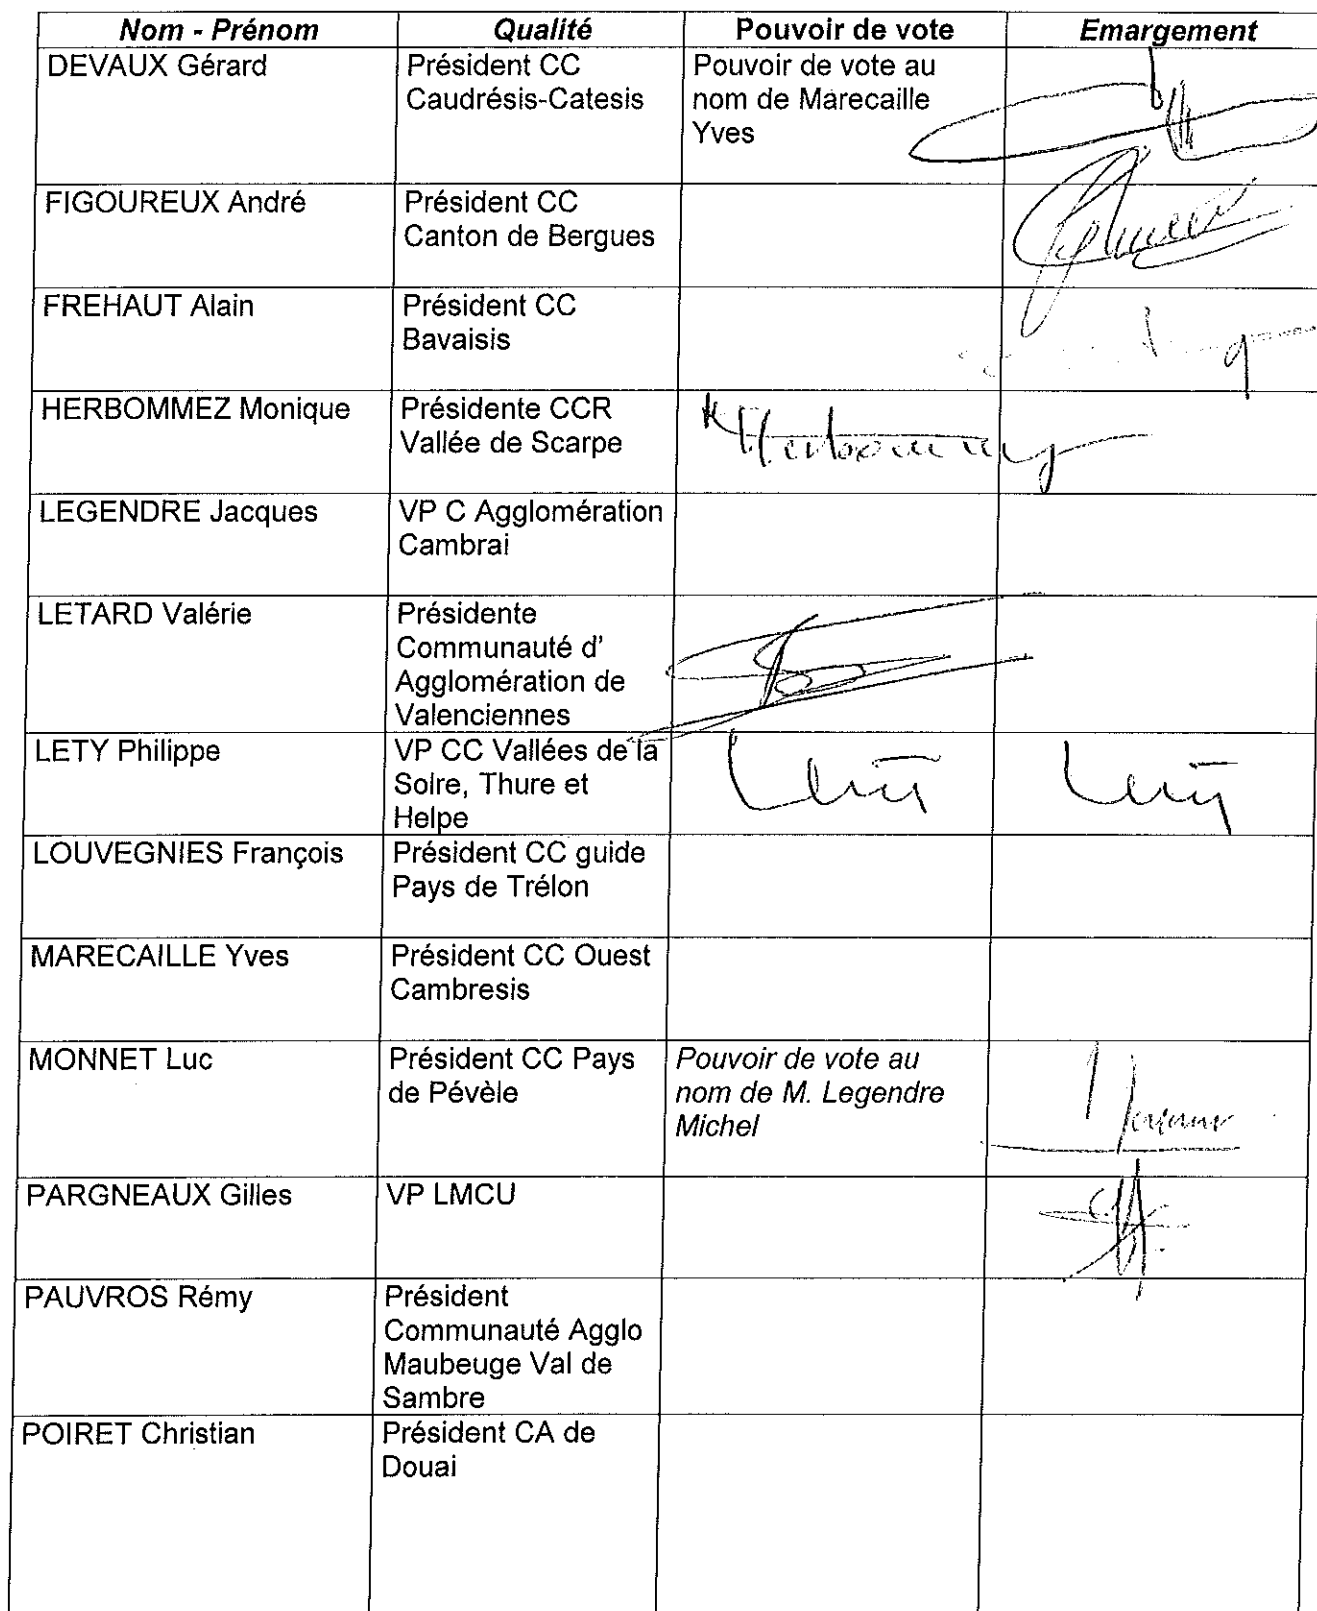 Nom - Prénom Qualité Pouvoir de vote Emargement
DEVAUX Gérard Président CC Pouvoir de vote au
Caudrésis-Catesis nom de Marecaille
Yves
FIGOUREUX André Président CC
Canton de Bergues
FREHAUT Alain Président CC
Bavaisis
HERBOMMEZ Monique Présidente CCR Herbommez
Vallée de Scarpe
LEGENDRE Jacques VP C Agglomération
Cambrai
LETARD Valérie Présidente
Communauté d'
Agglomération de
Valenciennes
LETY Philippe VP CC Vallées de la Lety Lety
Solre, Thure et
Helpe
LOUVEGNIES François Président CC guide
Pays de Trélon
MARECAILLE Yves Président CC Ouest
Cambresis
MONNET Luc Président CC Pays Pouvoir de vote au
de Pévèle nom de M. Legendre
Michel
PARGNEAUX Gilles VP LMCU
PAUVROS Rémy Président
Communauté Agglo
Maubeuge Val de
Sambre
POIRET Christian Président CA de
Douai